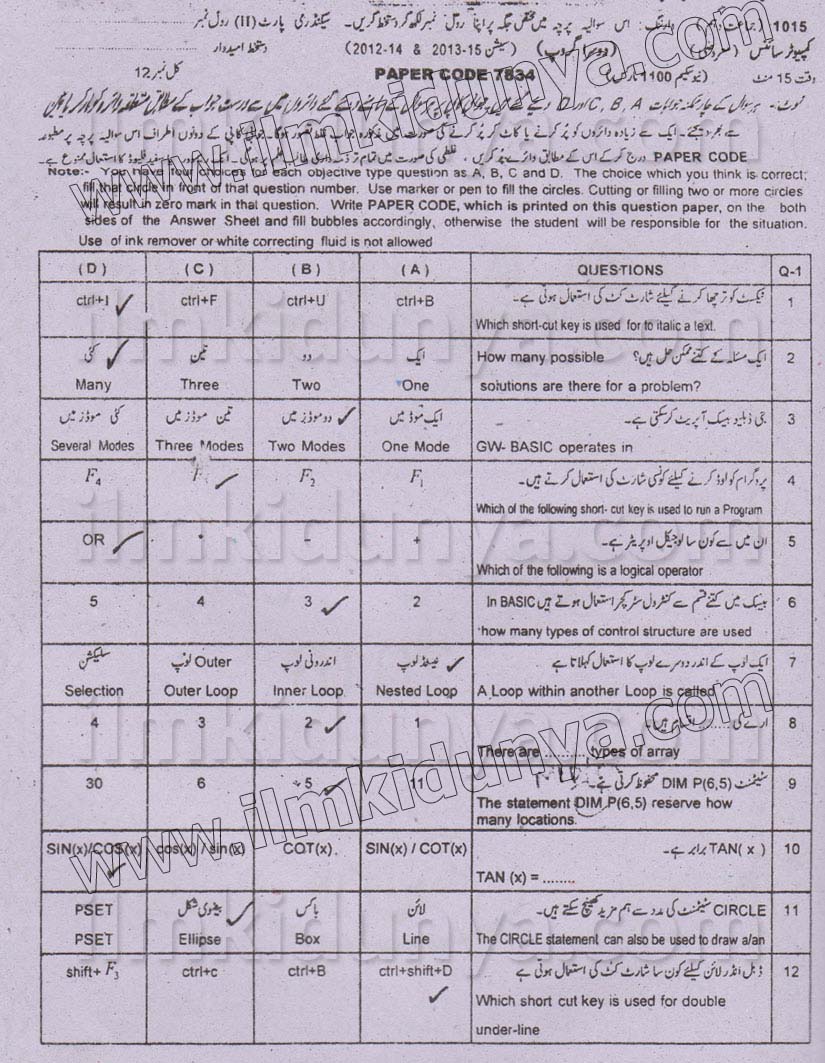 1015
اس سوالیہ پرچہ میں مختص جگہ پر اپنا رول نمبر لکھ کر دستخط کریں۔ سیکنڈری پارٹ (II) رول نمبر
کمپیوٹر سائنس (معروضی) (دوسرا گروپ) (سیشن 15-2013 & 14-2012) دستخط امیدوار
وقت 15 منٹ (نیو سکیم 1100 مارکس) PAPER CODE 7834 کل نمبر 12
PAPER CODE درج کر کے اس کے مطابق دائرے پُر کریں،
Note:- You have four choices for each objective type question as A, B, C and D. The choice which you think is correct;
fill that circle in front of that question number. Use marker or pen to fill the circles. Cutting or filling two or more circles
will result in zero mark in that question. Write PAPER CODE, which is printed on this question paper, on the both
sides of the Answer Sheet and fill bubbles accordingly, otherwise the student will be responsible for the situation.
Use of ink remover or white correcting fluid is not allowed
(D) (C) (B) (A) QUESTIONS Q-1
ٹیکسٹ کو ترچھا کرنے کیلئے شارٹ کٹ کی استعمال ہوتی ہے۔
ctrl+I ctrl+F ctrl+U ctrl+B 1
Which short-cut key is used for to italic a text.
کئی تین دو ایک ایک مسئلہ کے کتنے ممکن حل ہیں؟ How many possible 2
Many Three Two One soiutions are there for a problem?
کئی موڈز میں تین موڈز میں دو موڈز میں ایک موڈ میں جی ڈبلیو بیسک آپریٹ کر سکتی ہے۔ 3
Several Modes Three Modes Two Modes One Mode GW- BASIC operates in
F4 F F2 F1 پروگرام کو لوڈ کرنے کیلئے کونسی شارٹ کی استعمال کرتے ہیں۔ 4
Which of the following short- cut key is used to run a Program
OR * - + ان میں سے کون سا لوجیکل اوپریٹر ہے۔ 5
Which of the following is a logical operator
5 4 3 2 In BASIC بیسک میں کتنے قسم سے کنٹرول سٹرکچر استعمال ہوتے ہیں 6
how many types of control structure are used
سلیکشن Outer لوپ اندرونی لوپ نیسٹڈ لوپ ایک لوپ کے اندر دوسرے لوپ کا استعمال کہلاتا ہے 7
Selection Outer Loop Inner Loop Nested Loop A Loop within another Loop is called
4 3 2 1 ارے کی ........ اقسام ہیں۔ 8
There are .......... types of array
30 6 5 11 سٹیٹمنٹ DIM P(6,5) محفوظ کرتی ہے۔ 9
The statement DIM P(6,5) reserve how
many locations.
SIN(x)/COS(x) cos(x) / sin(x) COT(x) SIN(x) / COT(x) TAN( x ) برابر ہے۔ 10
TAN (x) = ........
PSET بیضوی شکل باکس لائن CIRCLE سٹیٹمنٹ کی مدد سے ہم مزید کھینچ سکتے ہیں۔ 11
PSET Ellipse Box Line The CIRCLE statement can also be used to draw a/an
shift+ F3 ctrl+c ctrl+B ctrl+shift+D ڈبل انڈر لائن کیلئے کون سا شارٹ کٹ کی استعمال ہوتی ہے 12
Which short cut key is used for double
under-line
www.ilmkidunya.com
www.ilmkidunya.com
ilmkidunya.com
ilmkidunya.com
ilmkidunya.com
ilmkidunya.com
ilmkidunya.com